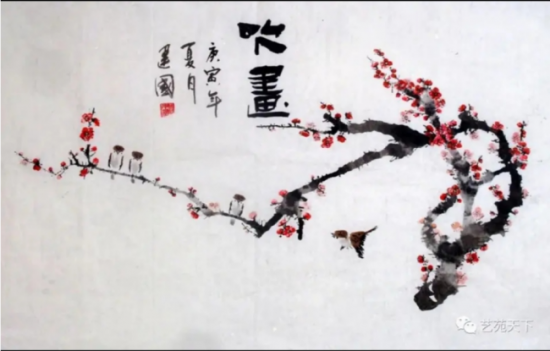 吹畫
庚寅年
夏月
建國
艺苑天下